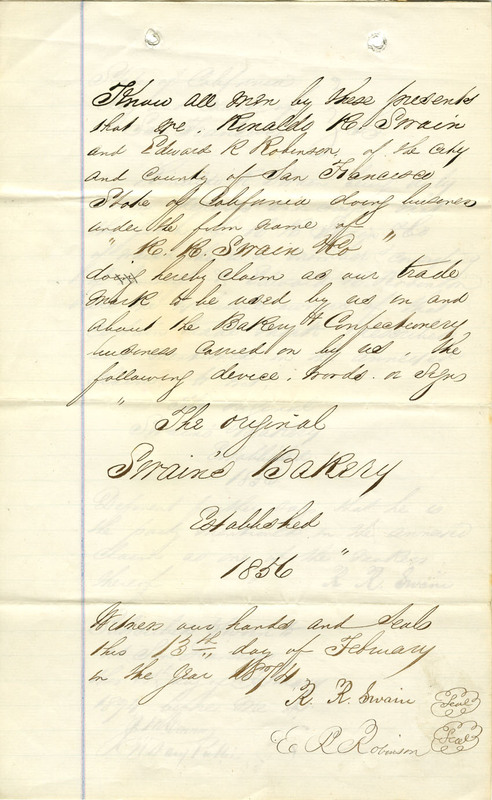 Know all men by these presents
that we, Rinaldo R. Swain
and Edward R Robinson, of the City
and County of San Francisco
State of California doing business
under the firm name of
" R. R. Swain & Co "
do hereby claim as our trade
mark to be used by us in and
about the Bakery & Confectionery
business carried on by us, the
following device, words or signs
" The original
Swain's Bakery
Established
1856 "
Witness our hands and Seals
this 13th day of February
in the year 1874
R. R. Swain Seal
E R Robinson Seal